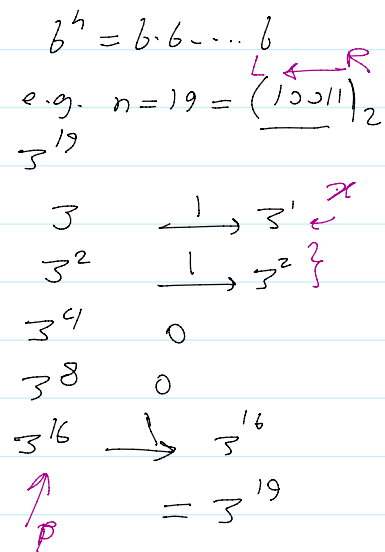 b^n = b·b-....b
L ← R
e.g. n=19 = (10011)_2
3^19
x
3 1→ 3^1 ←
3^2 1→ 3^2 }
3^4 0
3^8 0
3^16 1→ 3^16
P = 3^19